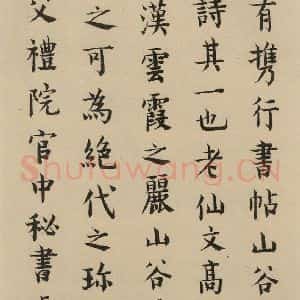 有攜行書帖山谷
詩其一也老仙文高
漢雲霞之麗山谷
之可為絕代之珎
父禮院官中秘書
Shufawang.CN